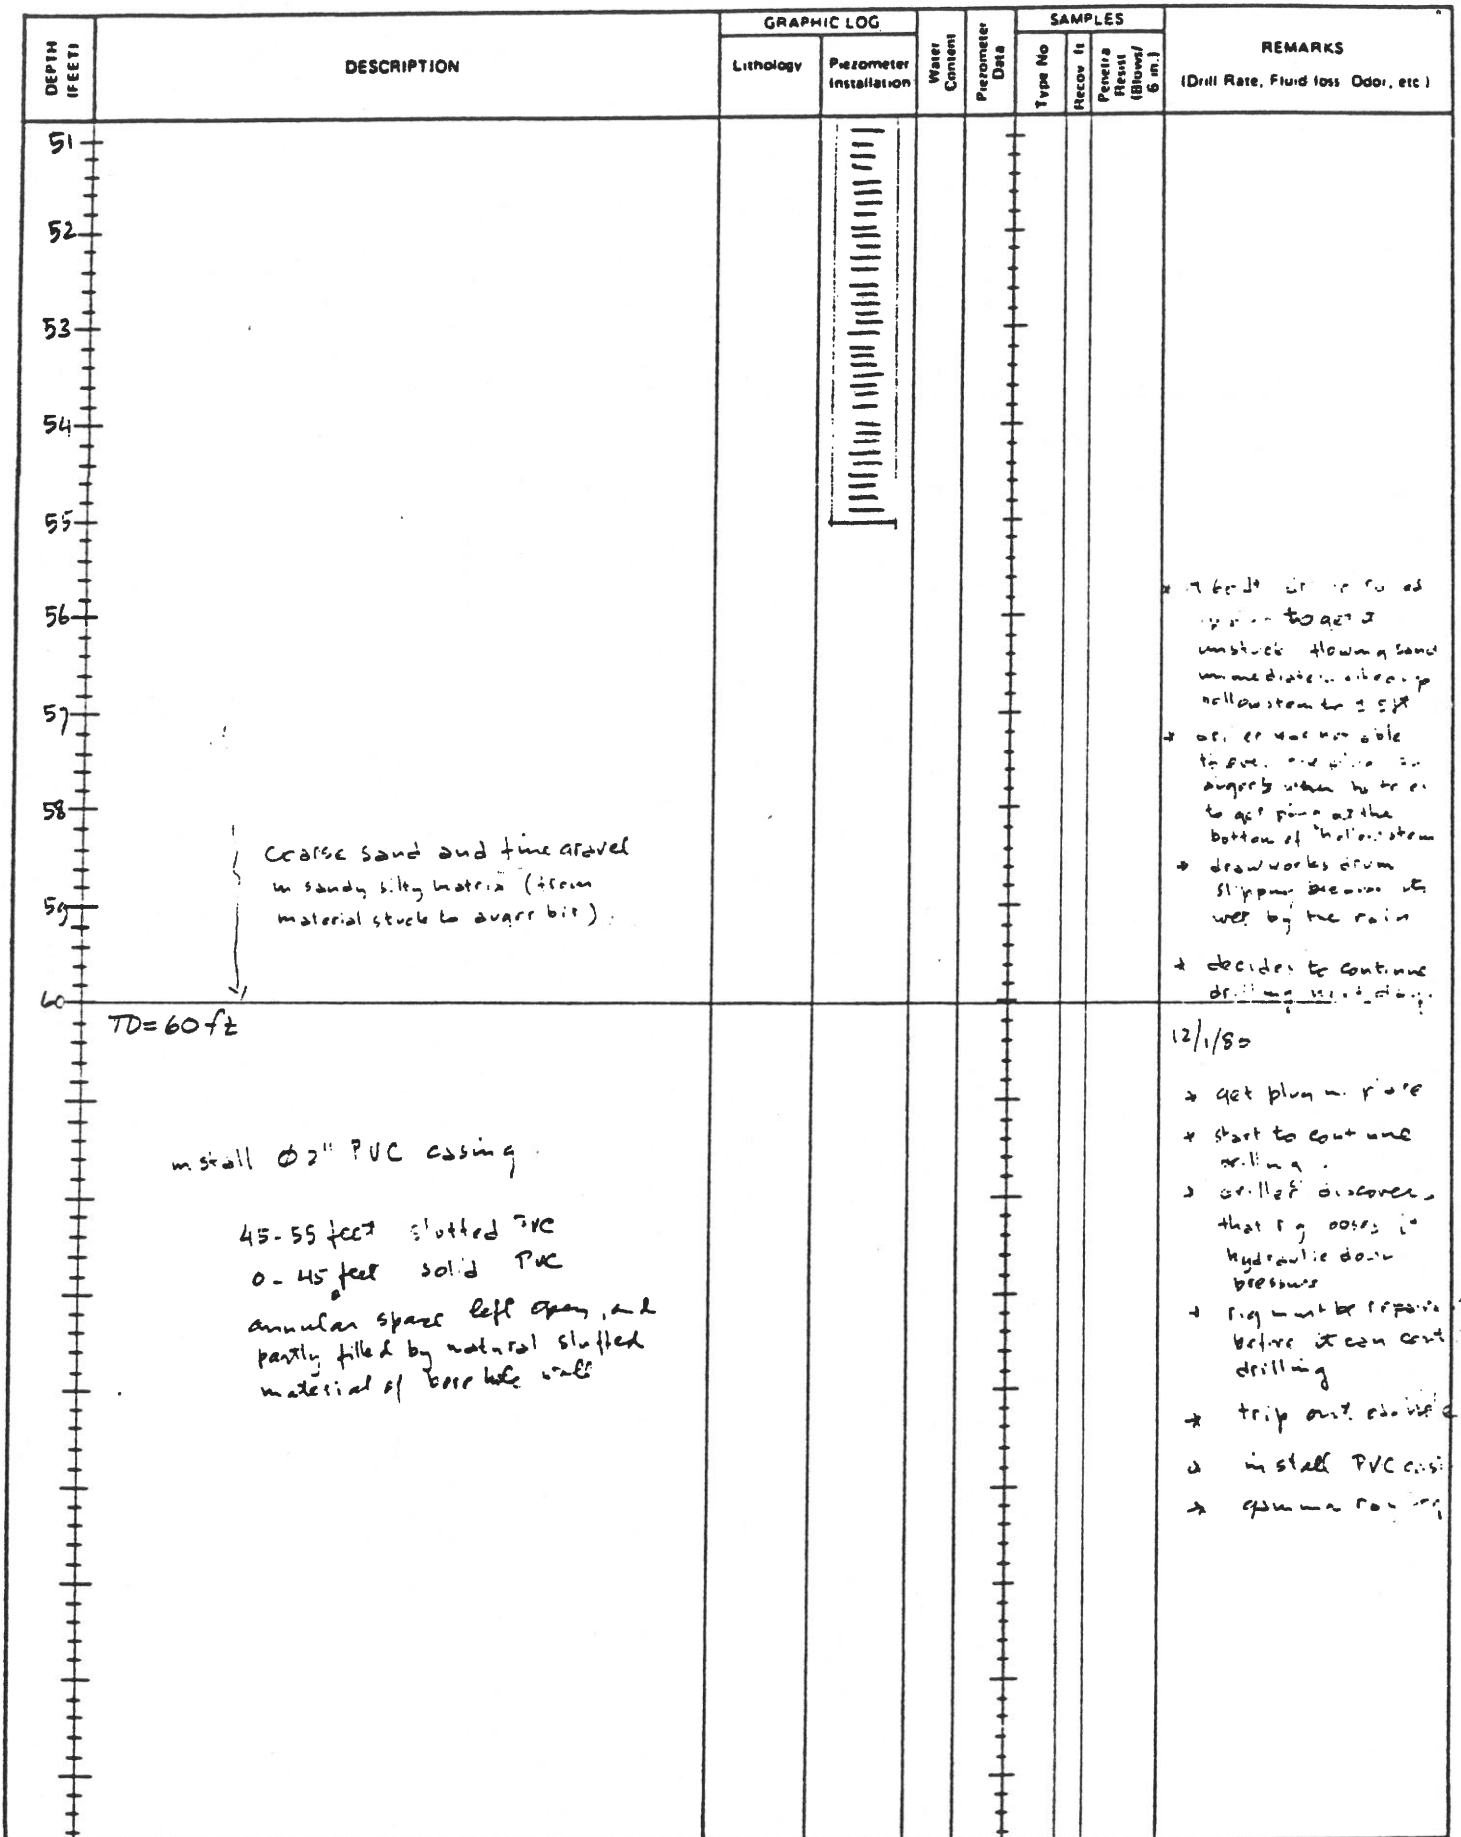 DEPTH (FEET)
DESCRIPTION
GRAPHIC LOG
Lithology
Piezometer Installation
Water Content
Piezometer Data
SAMPLES
Type No
Recov ft
Penetra Resist (Blows/ 6 in.)
REMARKS
(Drill Rate, Fluid loss Odor, etc)
51
52
53
54
55
56
57
58
59
60
coarse sand and fine gravel
in sandy silty matrix (from
material stuck to auger bit).
TD=60 ft
install Ø2" PVC casing.
45-55 feet slotted PVC
0-45 feet solid PVC
annular space left open, and
partly filled by natural sluffed
material of bore hole wall
to get
unstuck flowing sand
immediately
hollowstem to
was not able
augers when
to get at the
bottom of hollowstem
* drawworks drum
slipping
wet by the rain
* decides to continue
drilling next day.
12/1/8
* get plug in place
* start to continue
drilling.
* driller discovers
that rig
hydraulic down
pressure
* rig must be
before it can
drilling
* trip out
* install PVC
* gamma